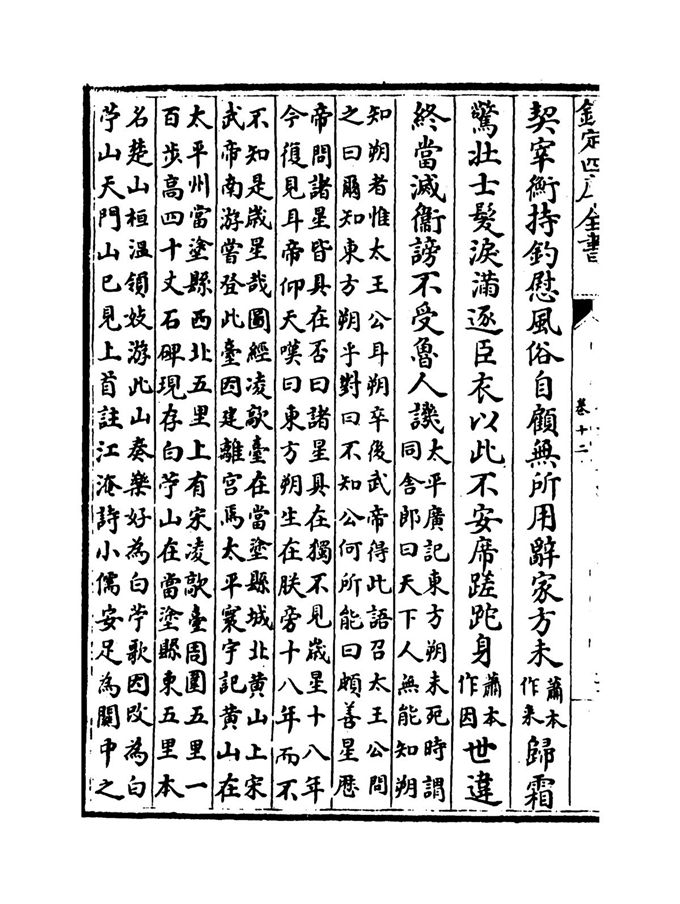 欽定四庫全書
卷十二
契宰衡持釣慰風俗自顧無所用辭家方未蕭本作來歸霜
驚壯士髮淚滿逐臣衣以此不安席蹉跎身蕭本作因世違
終當滅衞謗不受魯人譏太平廣記東方朔未死時謂
同舍郎曰天下人無能知朔
知朔者惟太王公耳朔卒後武帝得此語召太王公問
之曰爾知東方朔乎對曰不知公何所能曰頗善星厯
帝問諸星皆具在否曰諸星具在獨不見嵗星十八年
今復見耳帝仰天嘆曰東方朔生在朕旁十八年而不
不知是嵗星哉圖經凌歊臺在當塗縣城北黄山上宋
武帝南游嘗登此臺因建離宫焉太平寰宇記黄山在
太平州當塗縣西北五里上有宋凌歊臺周圍五里一
百步高四十丈石碑現存白苧山在當塗縣東五里本
名楚山桓溫領妓游此山奏樂好為白苧歌因改為白
苧山天門山已見上首註江淹詩小儒安足為關中之